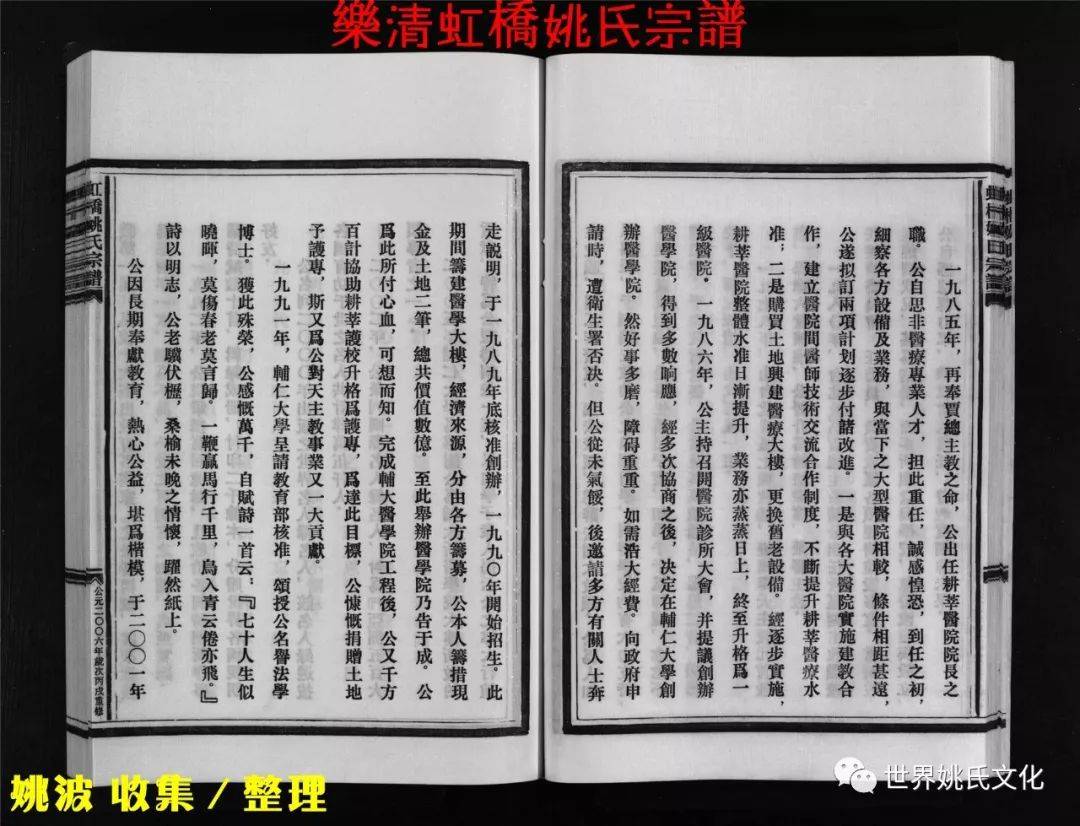 樂清虹橋姚氏宗譜
一九八五年，再奉賈總主教之命，公出任耕莘醫院院長之
職。公自思非醫療專業人才，担此重任，誠感惶恐，到任之初，
細察各方設備及業務，與當下之大型醫院相較，條件相距甚遠，
公遂拟訂兩項計划逐步付諸改進。一是與各大醫院實施建教合
作，建立醫院間醫師技術交流合作制度，不斷提升耕莘醫療水
准，二是購買土地興建醫療大樓，更换舊老設備。經逐步實施，
耕莘醫院整體水准日漸提升，業務亦蒸蒸日上，終至升格爲一
級醫院。一九八六年，公主持召開醫院診所大會，并提議創辦
醫學院，得到多數响應，經多次協商之後，决定在輔仁大學創
辦醫學院。然好事多磨，障碍重重。如需浩大經費。向政府申
請時，遭衛生署否决。但公從未氣餒，後邀請多方有關人士奔
走説明，于一九八九年底核准創辦，一九九〇年開始招生。此
期間籌建醫學大樓，經濟來源，分由各方籌募，公本人籌措現
金及土地二筆，總共價值數億。至此舉辦醫學院乃告于成。公
爲此所付心血，可想而知。完成輔大醫學院工程後，公又千方
百計協助耕莘護校升格爲護專，爲達此目標，公慷慨捐贈土地
予護專，斯又爲公對天主教事業又一大貢獻。
一九九一年，輔仁大學呈請教育部核准，頒授公名譽法學
博士。獲此殊榮，公感慨萬千，自賦詩一首云：『七十人生似
曉暉，莫傷春老莫言歸。一鞭羸馬行千里，鳥入青云倦亦飛。』
詩以明志，公老驥伏櫪，桑榆未晚之情懷，躍然紙上。
公因長期奉獻教育，熱心公益，堪爲楷模，于二〇〇一年
虹橋姚氏宗譜
公元二〇〇六年歲次丙戌重修
姚波 收集 / 整理
世界姚氏文化